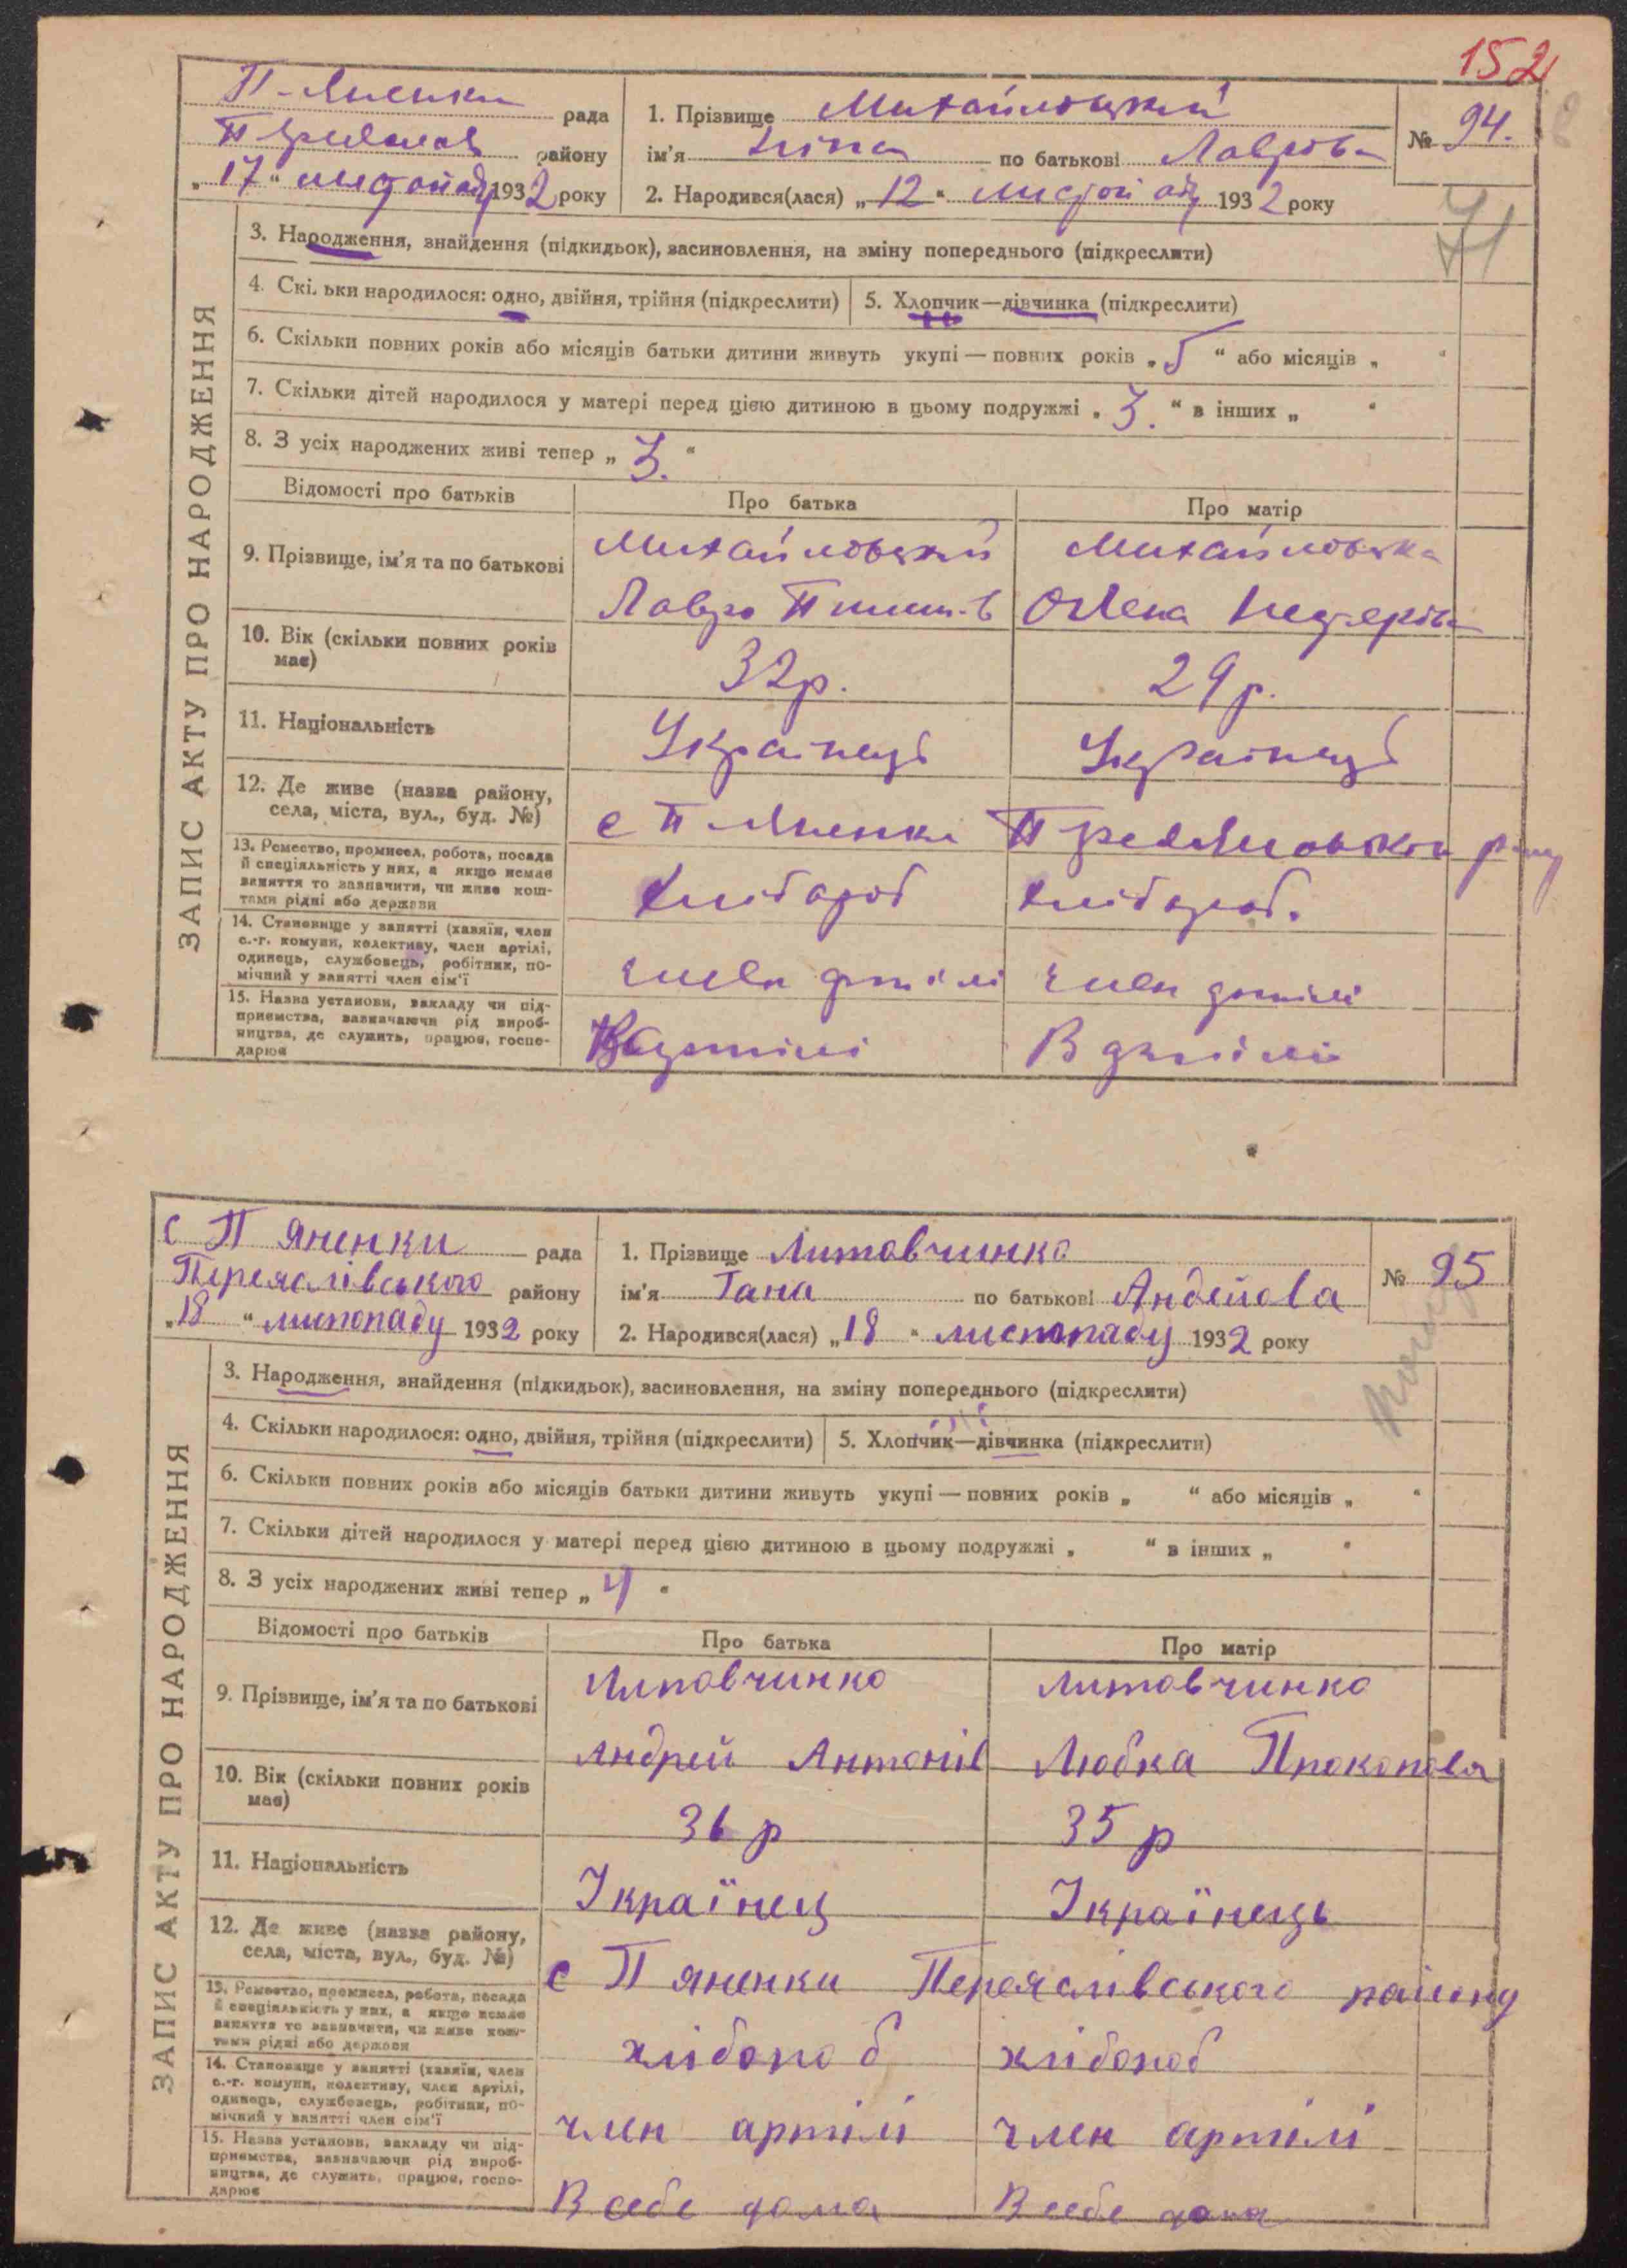 152
П-Яненки рада
району
„17“ листопаду 1932 року
1. Прізвище Михайловський
ім'я по батькові Лаврова
№ 94.
2. Народився(лася) „12“ листопаду 1932 року
3. Народження, знайдення (підкидьок), засиновлення, на зміну попереднього (підкреслити)
4. Скільки народилося: одно, двійня, трійня (підкреслити)
5. Хлопчик—дівчинка (підкреслити)
6. Скільки повних років або місяців батьки дитини живуть укупі — повних років „5“ або місяців „ “
7. Скільки дітей народилося у матері перед цією дитиною в цьому подружжі „3.“ в інших „ “
8. З усіх народжених живі тепер „3.“
ЗАПИС АКТУ ПРО НАРОДЖЕННЯ
Відомості про батьків
Про батька
Про матір
9. Прізвище, ім'я та по батькові
Михайловський
Михайловська
Лавро
Олена
10. Вік (скільки повних років
має)
32р.
29 р.
11. Національність
Українець
Українець
12. Де живе (назва району,
села, міста, вул., буд. №)
с П-Яненки
13. Ремество, промисел, робота, посада
й спеціяльність у них, а якщо немає
заняття то зазначити, чи живе кош-
тами рідні або держави
хлібороб
хлібороб.
14. Становище у занятті (хазяїн, член
с.-г. комуни, колективу, член артілі,
одинець, службовець, робітник, по-
мічний у занятті член сім'ї
член артілі
член артілі
15. Назва установи, закладу чи під-
приємства, зазначаючи рід вироб-
ництва, де служить, працює, госпо-
дарює
В артілі
В артілі
с П яненки рада
Переяслівського району
„18“ листопаду 1932 року
1. Прізвище Литовчинко
ім'я Гана по батькові Андейова
№ 95
2. Народився(лася) „18“ листопаду 1932 року
3. Народження, знайдення (підкидьок), засиновлення, на зміну попереднього (підкреслити)
4. Скільки народилося: одно, двійня, трійня (підкреслити)
5. Хлопчик—дівчинка (підкреслити)
6. Скільки повних років або місяців батьки дитини живуть укупі — повних років „ “ або місяців „ “
7. Скільки дітей народилося у матері перед цією дитиною в цьому подружжі „ “ в інших „ “
8. З усіх народжених живі тепер „4“
ЗАПИС АКТУ ПРО НАРОДЖЕННЯ
Відомості про батьків
Про батька
Про матір
9. Прізвище, ім'я та по батькові
Литовчинко
Литовчинко
Андрей Антонів
Любка Прокопова
10. Вік (скільки повних років
має)
36 р
35 р
11. Національність
Україніец
Українець
12. Де живе (назва району,
села, міста, вул., буд. №)
с П яненки Переяслівського району
13. Ремество, промисел, робота, посада
й спеціяльність у них, а якщо немає
заняття то зазначити, чи живе кош-
тами рідні або держави
хлібороб
хлібороб
14. Становище у занятті (хазяїн, член
с.-г. комуни, колективу, член артілі,
одинець, службовець, робітник, по-
мічний у занятті член сім'ї
член артілі
член артілі
15. Назва установи, закладу чи під-
приємства, зазначаючи рід вироб-
ництва, де служить, працює, госпо-
дарює
В себе дома
В себе дома